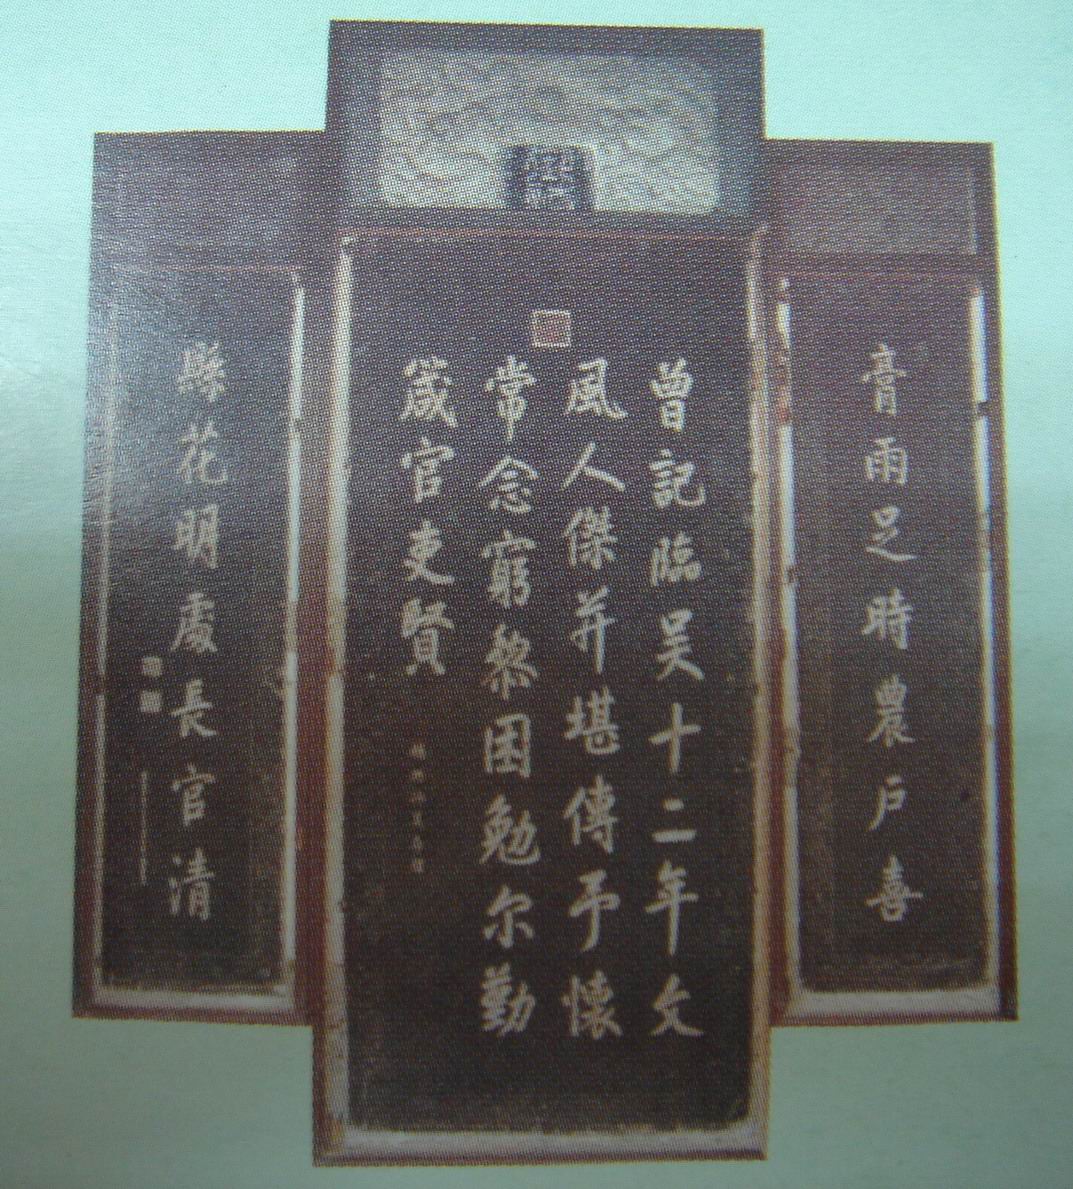 膏雨足時農户喜
曾記臨吴十二年文
風人傑并堪傳予懷
常念窮黎困勉尔勤
箴官吏賢
縣花明處長官清